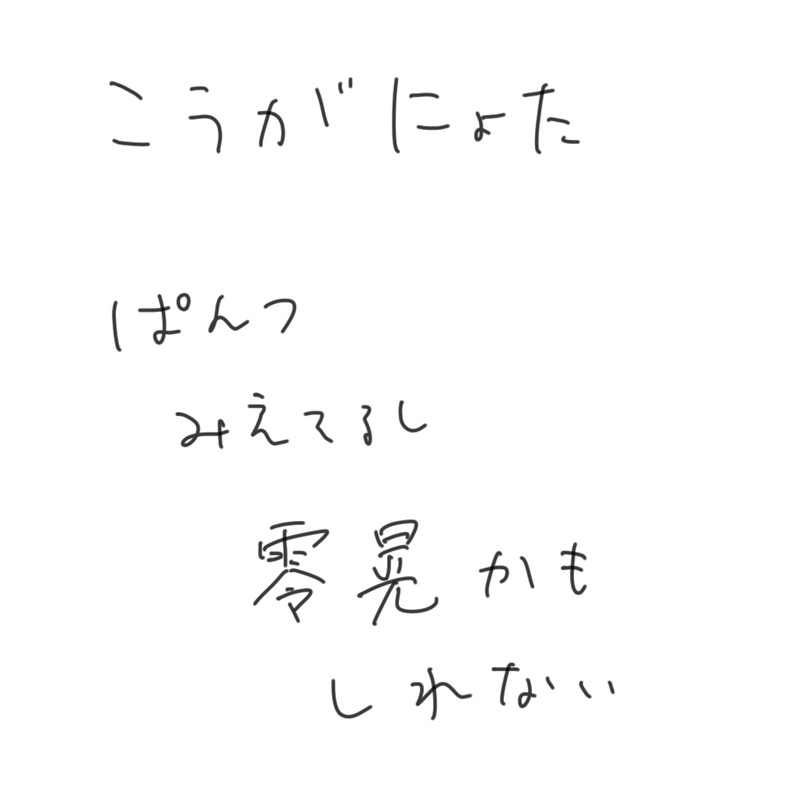 こうがにょた
ぱんつ
みえてるし
零晃かも
しれない